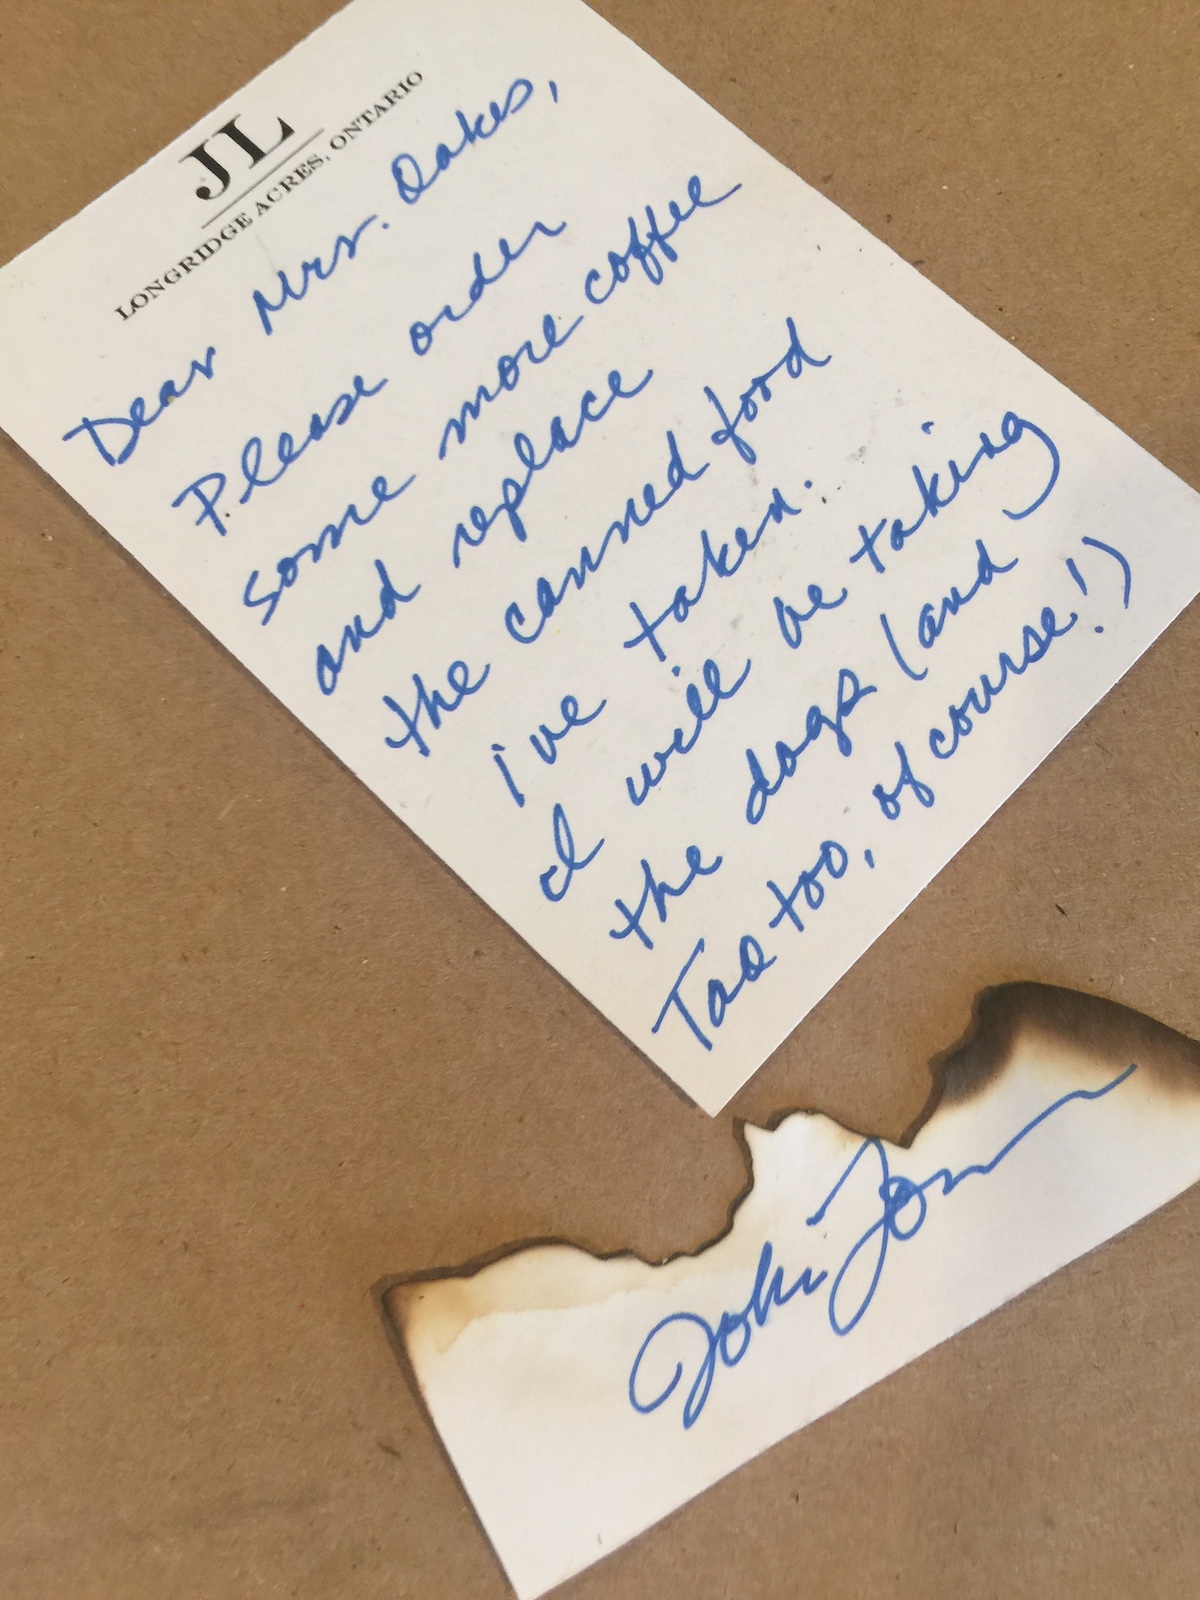 JL
LONGRIDGE ACRES, ONTARIO
Dear Mrs. Oakes,
Please order
some more coffee
and replace
the canned food
i've taken.
I will be taking
the dogs (and
Tao too, of course!)